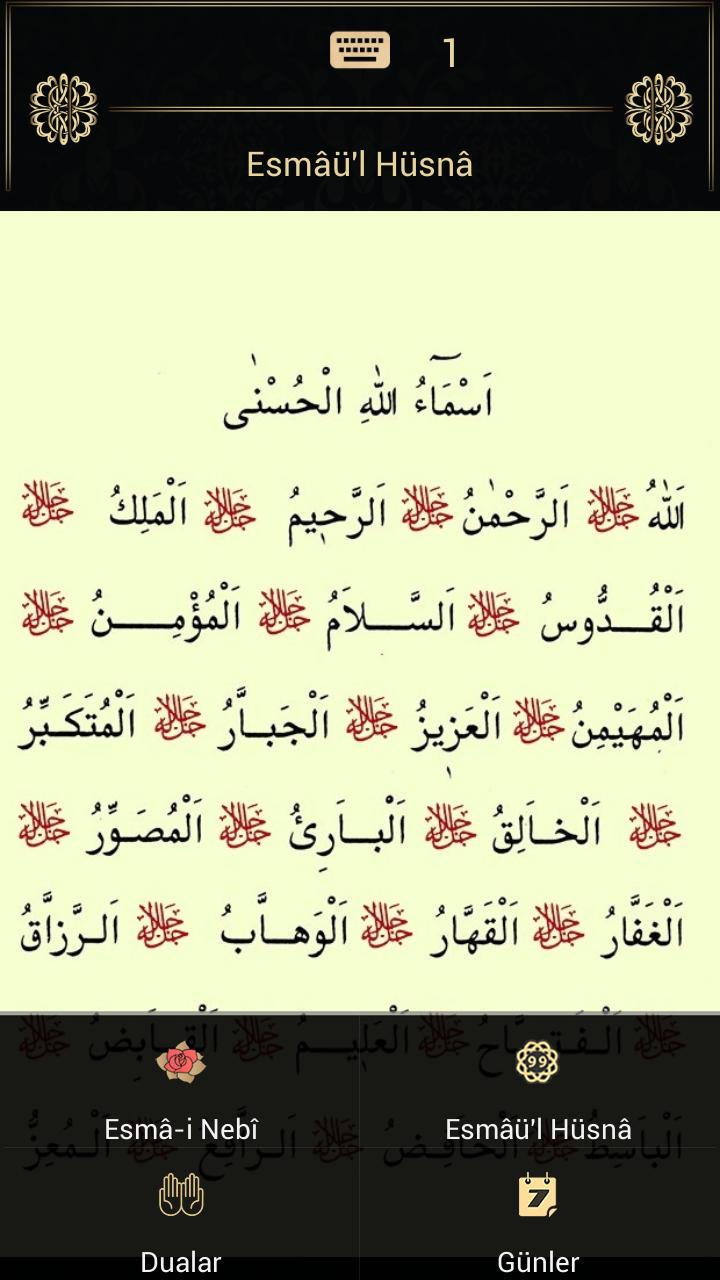 1
Esmâü'l Hüsnâ
اَسْمَاءُ اللّٰهِ الْحُسْنٰى
اَللّٰهُ جل جلاله اَلرَّحْمٰنُ جل جلاله اَلرَّحٖيمُ جل جلاله اَلْمَلِكُ جل جلاله
اَلْقُدُّوسُ جل جلاله اَلسَّلاَمُ جل جلاله اَلْمُؤْمِنُ جل جلاله
اَلْمُهَيْمِنُ جل جلاله اَلْعَزٖيزُ جل جلاله اَلْجَبَّارُ جل جلاله اَلْمُتَكَبِّرُ
جل جلاله اَلْخَالِقُ جل جلاله اَلْبَارِئُ جل جلاله اَلْمُصَوِّرُ جل جلاله
اَلْغَفَّارُ جل جلاله اَلْقَهَّارُ جل جلاله اَلْوَهَّابُ جل جلاله اَلرَّزَّاقُ
جل جلاله اَلْفَتَّاحُ جل جلاله اَلْعَلٖيمُ جل جلاله اَلْقَابِضُ جل جلاله
اَلْبَاسِطُ جل جلاله اَلْخَافِضُ جل جلاله اَلرَّافِعُ جل جلاله اَلْمُعِزُّ
Esmâ-i Nebî
99
Esmâü'l Hüsnâ
7
Dualar
Günler